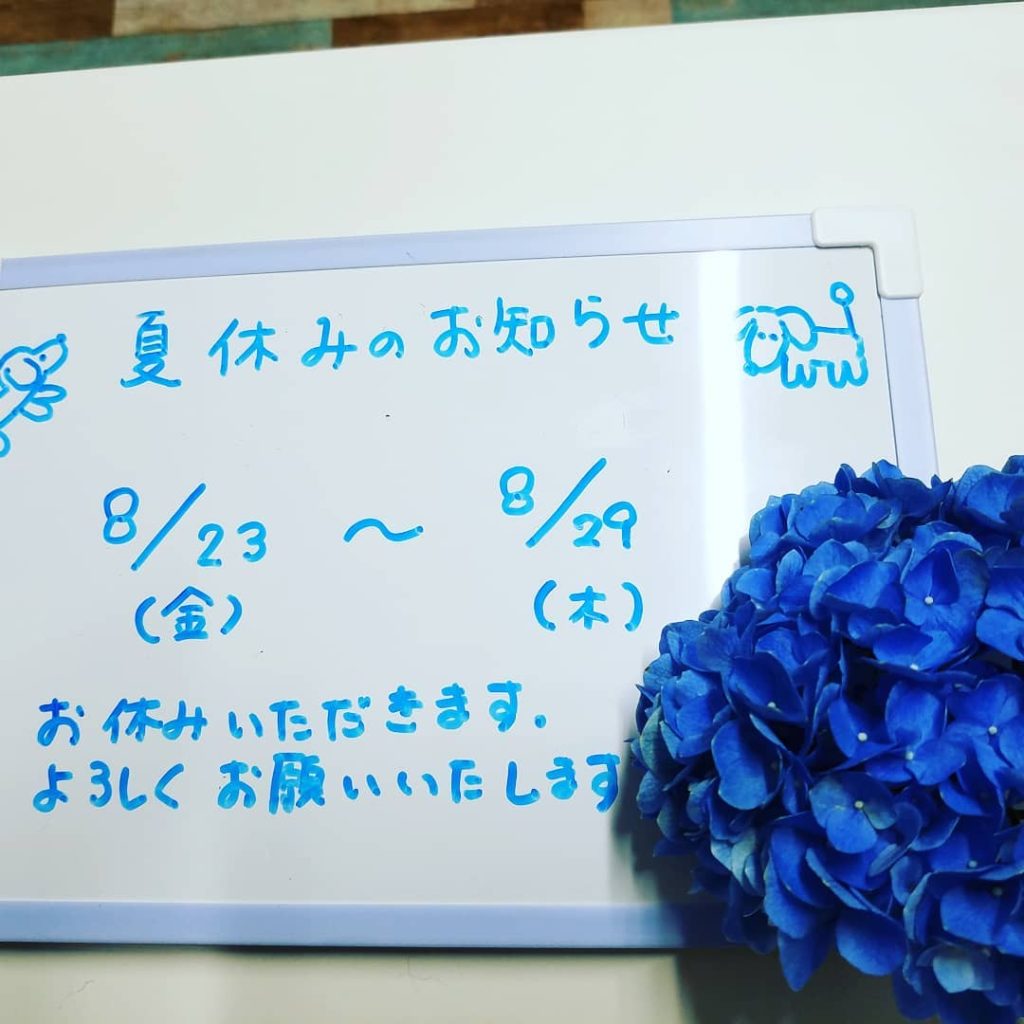 夏休みのお知らせ
8/23 ～ 8/29
(金) (木)
お休みいただきます.
よろしくお願いいたします